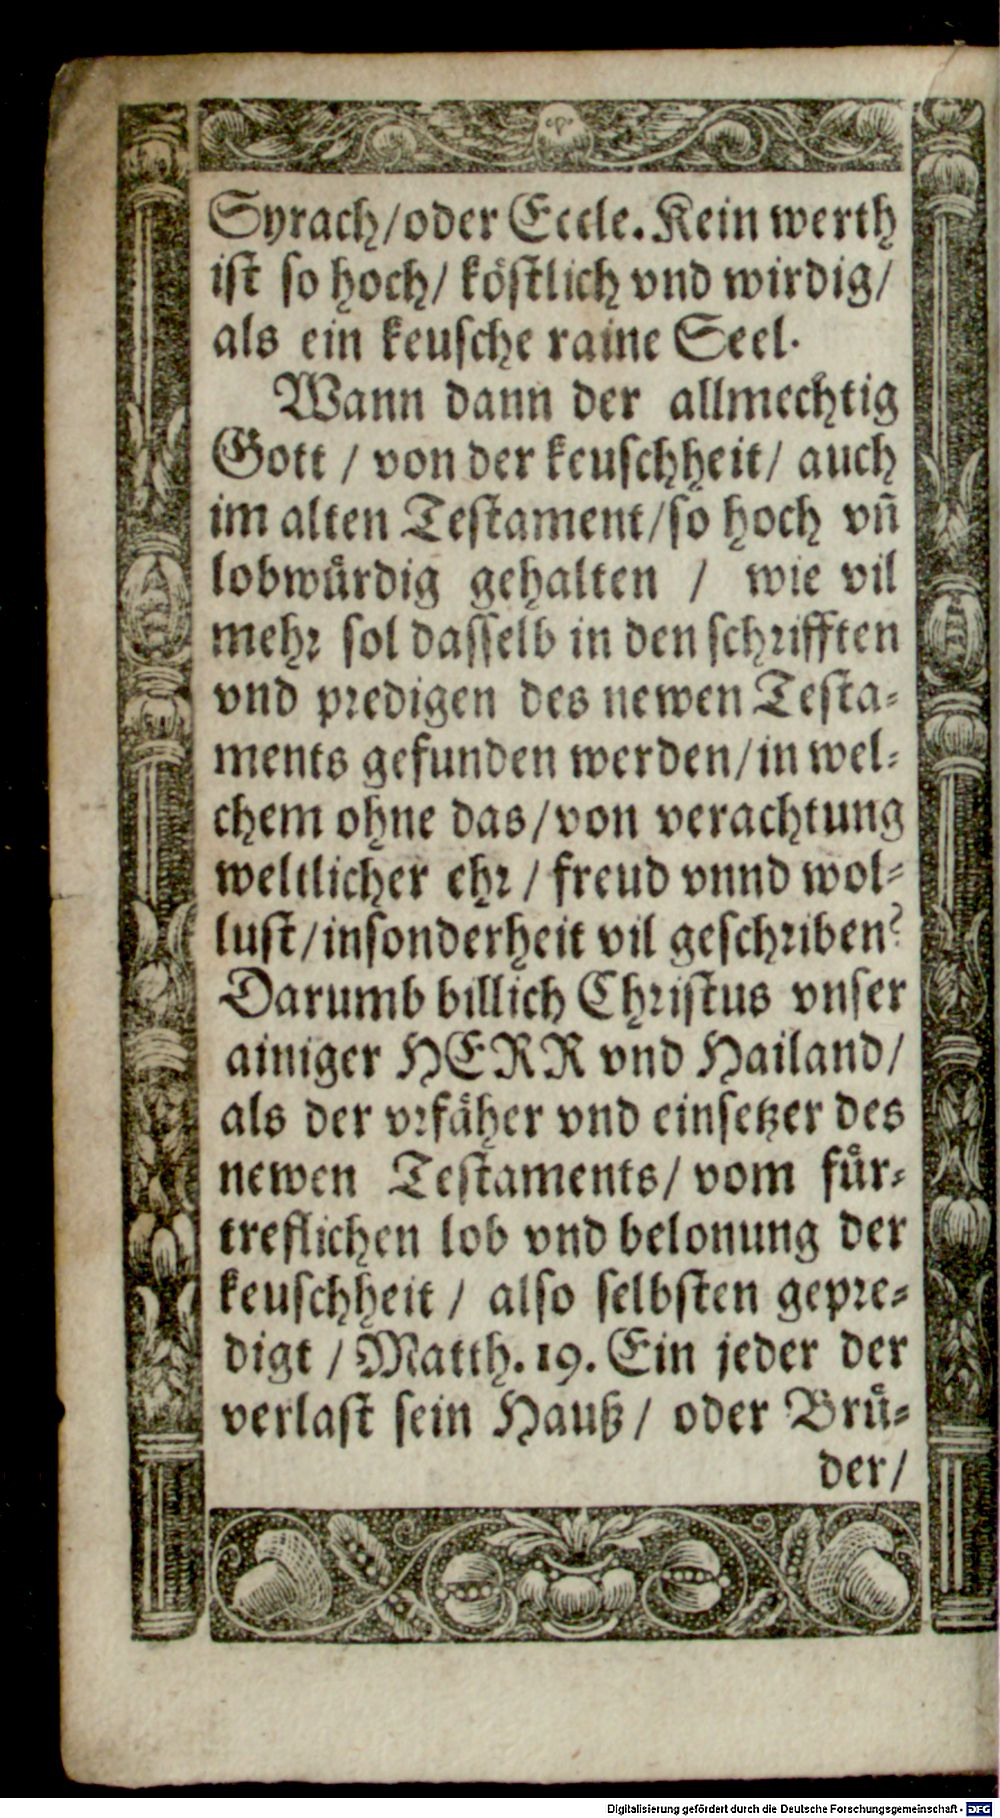 Syrach/oder Eccle. Kein werth
ist so hoch/ köstlich vnd wirdig/
als ein keusche raine Seel.
Wann dann der allmechtig
Gott / von der keuschheit/ auch
im alten Testament/so hoch vñ
lobwuͤrdig gehalten / wie vil
mehr sol dasselb in den schrifften
vnd predigen des newen Testa-
ments gefunden werden/in wel-
chem ohne das/von verachtung
weltlicher ehr / freud vnnd wol-
lust/insonderheit vil geschriben?
Darumb billich Christus vnser
ainiger HERR vnd Hailand/
als der vrfäher vnd einsetzer des
newen Testaments/ vom fuͤr-
treflichen lob vnd belonung der
keuschheit / also selbsten gepre-
digt / Matth. 19. Ein jeder der
verlast sein Hauß/ oder Bruͤ-
der/
Digitalisierung gefördert durch die Deutsche Forschungsgemeinschaft - DFG